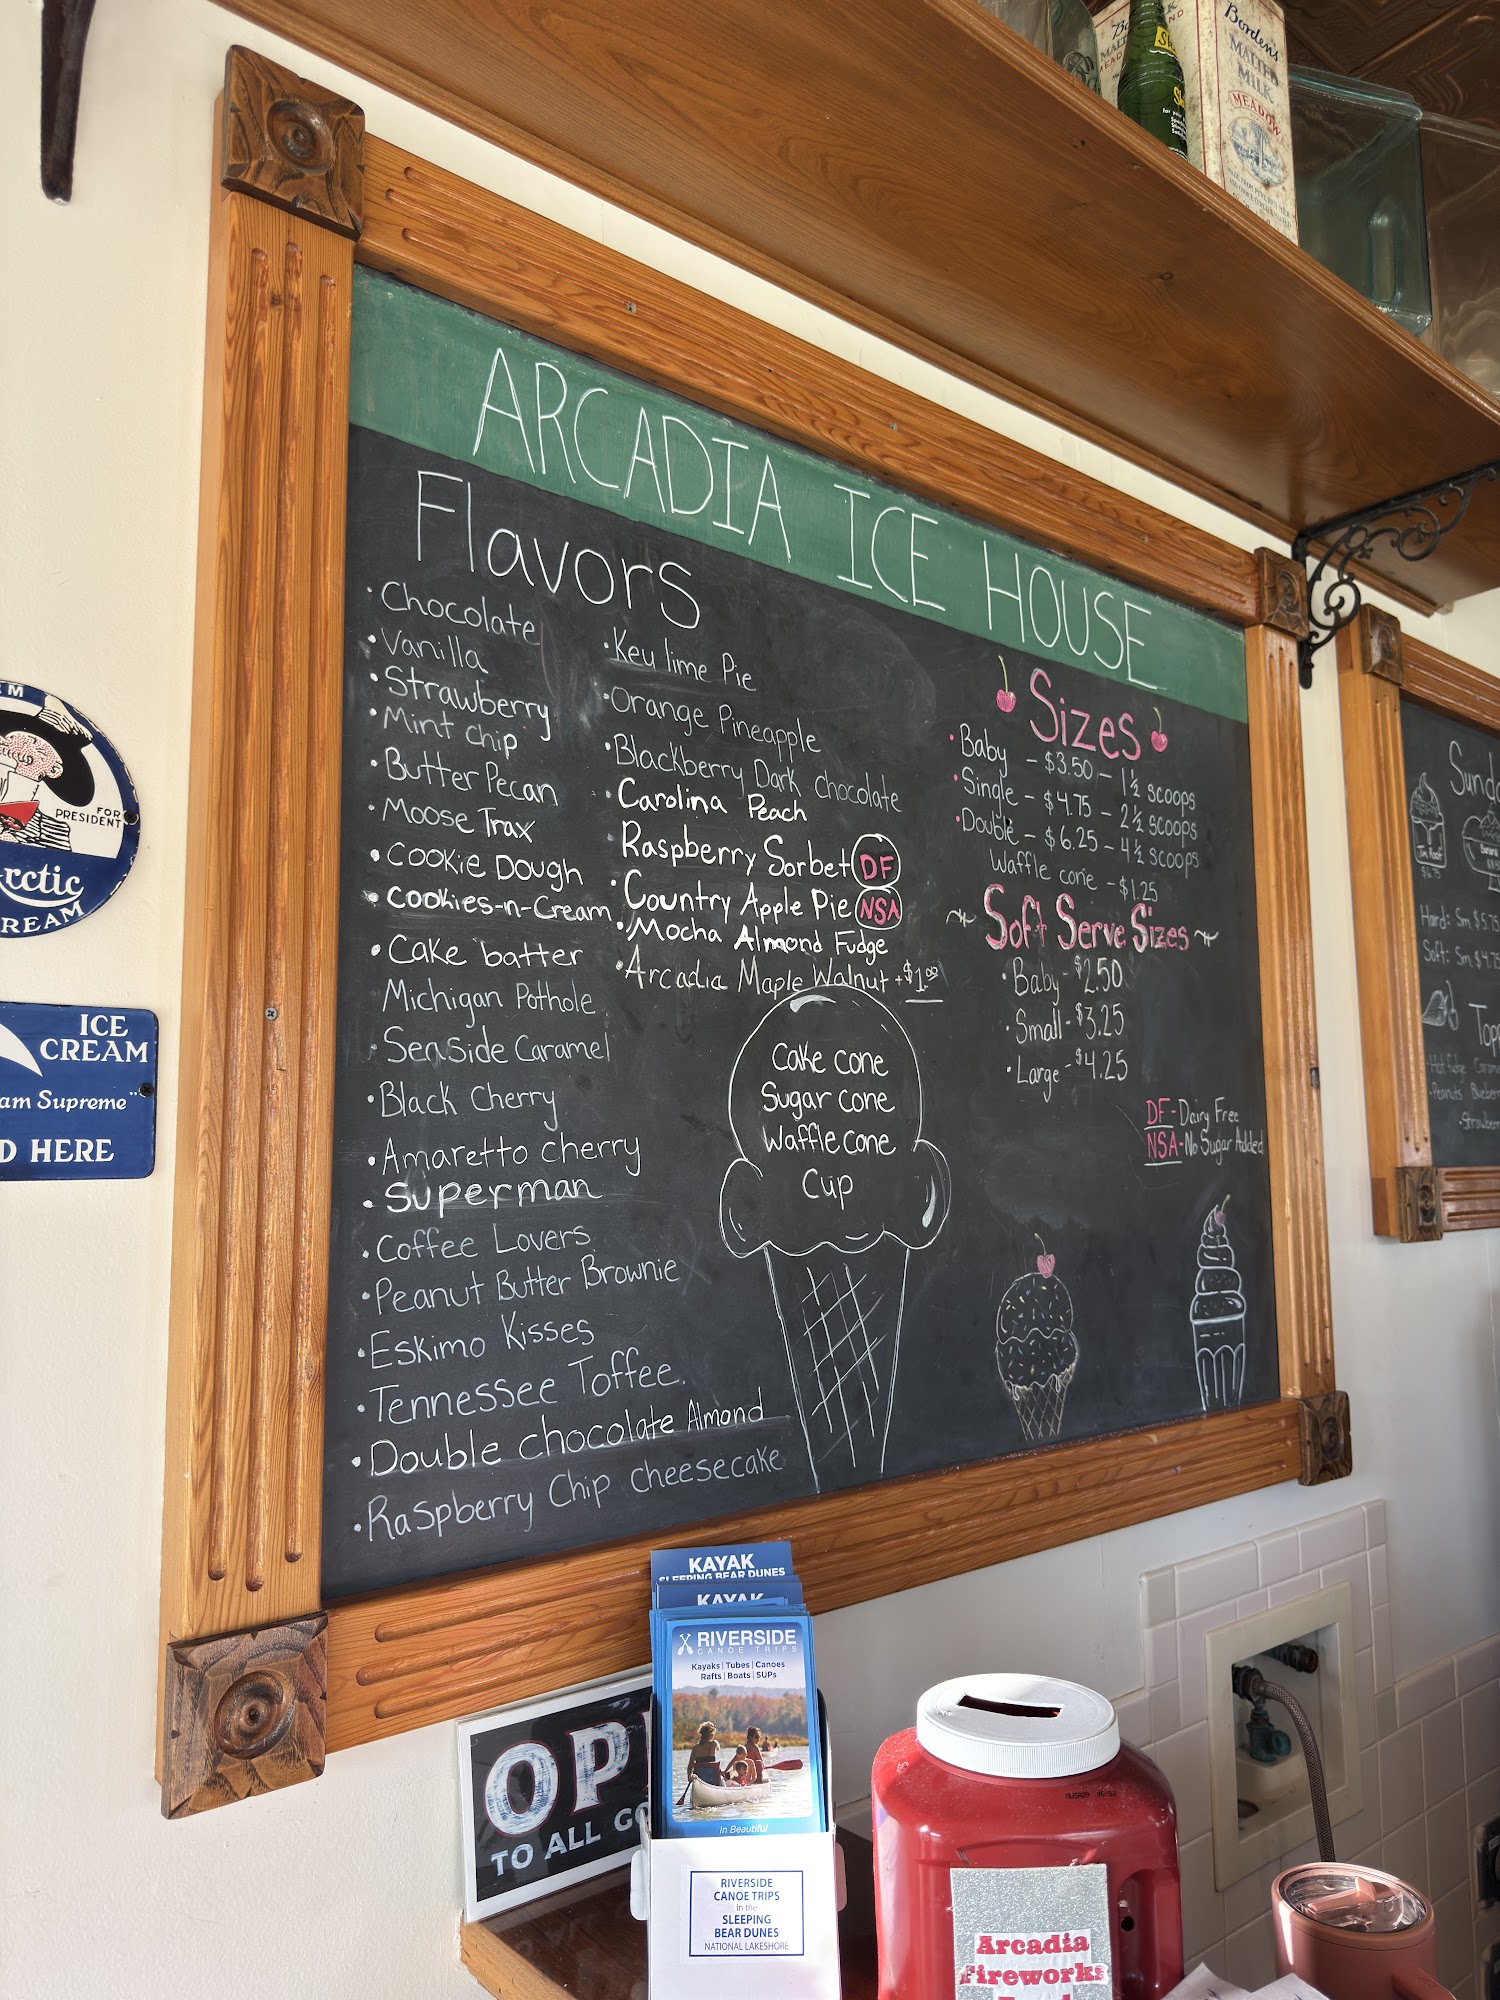 ARCADIA ICE HOUSE
Flavors
• Chocolate
• Vanilla
• Strawberry
• Mint chip
• Butter Pecan
• Moose Trax
• Cookie Dough
• Cookies-n-Cream
• Cake batter
Michigan Pothole
• Seaside Caramel
• Black Cherry
• Amaretto cherry
• Superman
• Coffee Lovers
• Peanut Butter Brownie
• Eskimo Kisses
• Tennessee Toffee
• Double chocolate Almond
• Raspberry Chip cheesecake
• Key lime Pie
• Orange Pineapple
• Blackberry Dark chocolate
• Carolina Peach
Raspberry Sorbet DF
• Country Apple Pie NSA
• Mocha Almond Fudge
• Arcadia Maple Walnut +$1.00
Cake cone
Sugar cone
Waffle cone
Cup
Sizes
• Baby - $3.50 - 1½ scoops
• Single - $4.75 - 2½ scoops
• Double - $6.25 - 4½ scoops
Waffle cone - $1.25
Soft Serve Sizes
• Baby - $2.50
• Small - $3.25
• Large - $4.25
DF - Dairy Free
NSA - No Sugar Added
Borden's
MALTED
MILK
MEADOW
FOR
PRESIDENT
rctic
REAM
ICE
CREAM
am Supreme"
D HERE
Hard: Sm. $5.75
Soft: Sm. $4.75
KAYAK
SLEEPING BEAR DUNES
KAYAK
RIVERSIDE
CANOE TRIPS
Kayaks | Tubes | Canoes
Rafts | Boats | SUPs
In Beautiful
RIVERSIDE
CANOE TRIPS
in the
SLEEPING
BEAR DUNES
NATIONAL LAKESHORE
OP
TO ALL GO
Arcadia
Fireworks